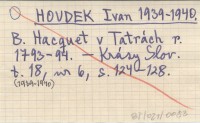 HOUDEK Ivan 1939-1940.
B. Hacquet v Tatrách r.
1793-94. — Krásy Slov.
t. 18, nr 6, s. 124-128.
(1939-1940)